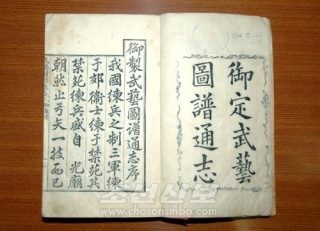 御定武藝
圖譜通志
御製武藝圖譜通志序
我國練兵之制三軍練
于郊衛士練于禁苑其
禁苑練兵盛自 光廟
朝然止弓矢一技而已
조선신보
www.chosonsinbo.com